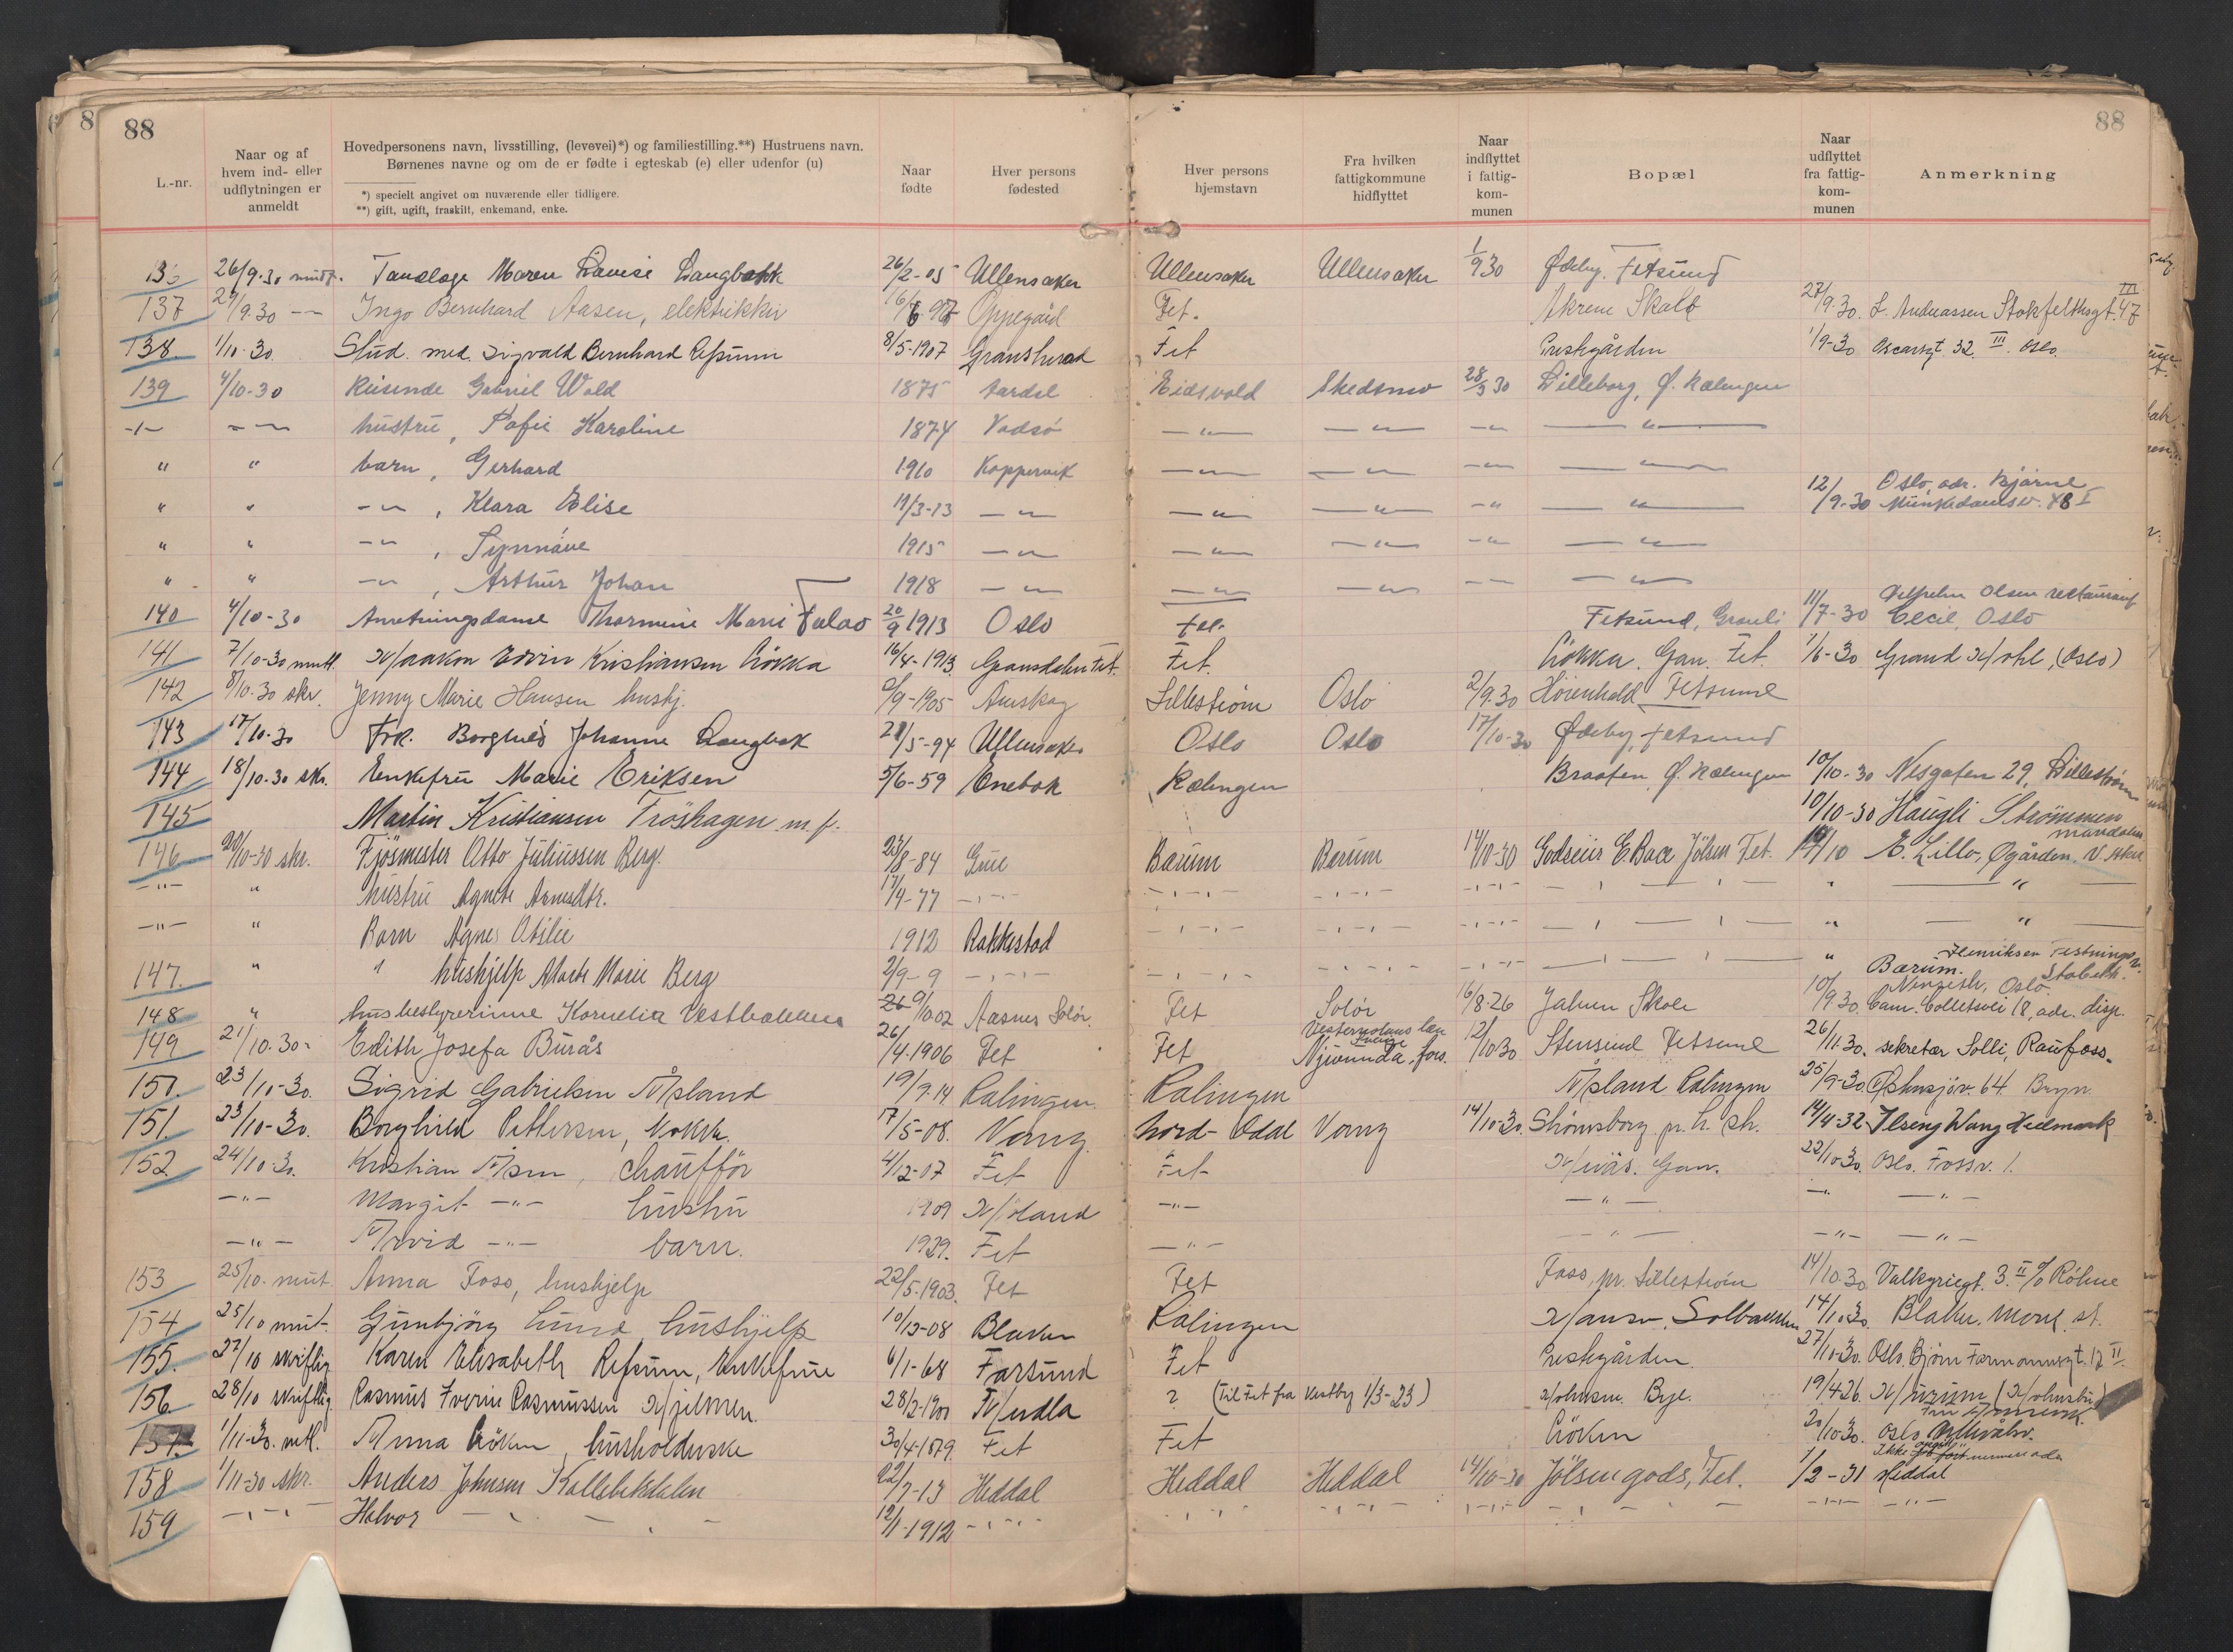 88
88
L.-nr.
Naar og af hvem ind- eller udflytningen er anmeldt
Hovedpersonens navn, livsstilling, (levevei)*) og familiestilling.**) Hustruens navn. Børnenes navne og om de er fødte i egteskab (e) eller udenfor (u)
*) specielt angivet om nuværende eller tidligere.
**) gift, ugift, fraskilt, enkemand, enke.
Naar fødte
Hver persons fødested
Hver persons hjemstavn
Fra hvilken fattigkommune hidflyttet
Naar indflyttet i fattig-kom-munen
Bopæl
Naar udflyttet fra fattig-kom-munen
Anmerkning
26/9.30 Maren Lovise Langbakk 26/2-05 Ullensaker Ullensaker Ullensaker 1/9 30 Ødeby. Fetsund
137 29/9.30 -- Bernhard Aasen, elektrikker Oppegård Fet. Skrene Skole 27/9.30. L. Andreassen Stokfelthsgt. 47 III
138 1/10-30. Stud. med. Sigvald Bernhard Refsum 8/5-1907 Gransherad Fet Prestegården 1/9-30 Oscarsgt. 32 III. Oslo.
139 4/10-30 Reisende Gabriel Wold 1875 Eidsvold Skedsmo 28/9 30 Lilleborg, Ø. Rælingen
-"- -"- hustru, Karoline 1874 Vadsö -"- -"- -"- -"-
" " barn, Gerhard 1910 Koppervik -"- -"- -"- -"-
" " -"-, Klara Elise 11/3-13 -"- -"- -"- -"- -"- 12/9-30 Oslo adr. Bjarne Munkedamsv. 48 I
" " -"-, Synnöve 1915 -"- -"- -"- -"- -"-
" " -"-, Arthur Johan 1918 -"- -"- -"- -- -"-
140 4/10-30 Anretningsdame Thormine Marie 20/9 1913 Oslo Fet. Fetsund, 11/7-30 Olsen restaurant Cecil, Oslo
141 7/10-30 muntl. Haakon Edvin Kristiansen Løkka 16/4-1913 Fet. Løkka. Gan. Fet. 1/6-30 Grand Hotel, (Oslo)
142 8/10.30 skr. Jenny Marie Hansen hushj. /9-1905 Aurskog Lillestrøm Oslo 2/9.30 Fetsund
143 17/10-30 Frk. Borghild Johanne Langbak 21/5-94 Ullensaker Oslo Oslo 17/10-30 Ødeby, Fetsund
144 18/10-30 skr. Enkefru Marie Eriksen 5/6-59 Enebak Rælingen Braaten, Ø. Rælingen 10/10-30 Nesgaten 29, Lillestrøm
145 Martin Kristiansen Tröshagen m. f. 10/10-30 Haugli Strömmen
146 20/10-30 skr. Fjøsmester Otto Juliussen Berg. 23/8-84 Grue Bærum Berum 14/10-30 Godseier E. Bace Jölsen Fet. 14/10 E. Lillo, Øgården,
-"- " hustru Agnete 17/4-77 -"- -"- -"- -"- -"- " -"-
-"- " Barn Agnes Otilie 1912 Rakkestad -"- -"- -"- -"- " -"-
147. " " hushjelp Marie Berg 2/9-9 -"- -"- -"- -"- -"- " Henriksen Festningsv. Bærum. Stabekk.
148 " husbestyrerinne Kornelia Vestbakken 9/10 02 Aasnes Solør. Fet Solør 16/8-26 Jahren Skole 10/9.30. Oslo. Cam. Colletsvei 18, adr. disp.
149 21/10.30 Edith Josefa Burås 26/4.1906 Fet Fet Njurunda, 12/10 30 Stensrud Fetsund 26/11.30. sekretær Solli, Raufoss.
150. 23/10-30. Sigrid Gabrielsen Aspland 19/9-14 Rælingen Rælingen Aspland Rælingen 25/9-30 Østensjøv. 64 Bryn.
151. 23/10-30. Borghild Pettersen, 17/5-08. Vang Nord-Odal Vang 14/10-30. Strømsborg 14/4-32 Ilseng Vang Hedmark
152 24/10-30. Kristian Aasen, chaufför 4/12-07 Fet Fet Gan. 22/10-30. Oslo. Fossv. 1.
-"- Margit -"- hustru 1909 Høland -"- -"- -"- -"-
-"- Arvid -"- barn. 1929. Fet -"- -"- -"- -"-
153 25/10. munt. Anna Foss, hushjelp 22/5.1903. Fet Fet Foss, pr. Lillestrøm 14/10.30 Valkyriegt. 3. II c/o Röhne
154 25/10 munt. Gunbjörg Lund hushjelp 10/12-08 Blaker Rælingen Solbakken 14/10.30. Blaker. st.
155. 27/10 skriftlig Karen Elisabeth Refsum, Enkefrue 6/1-68 Farsund Fet Prestegården. 27/10-30. Oslo, Bjørn Farmannsgt. 12 II.
156. 28/10 skriftlig Rasmus Rasmussen Hjelmen. 28/2-1900 ? (Til Fet fra Vestby 1/3-23) Johnsen. Brye. 19/4 26 Hurum (Holmsbu)
157. 1/11-30. mtl. Anna Løken, husholderske 30/4-1879. Fet Fet Løken 20/10-30. Oslo Ikke opgitt nermere adr
158 1/11-30 skr. Anders Johnsen Kollebekdalen 22/7-13 Heddal Heddal Heddal 14/10-30 Jölsen gods, Fet. 1/2-31 Heddal
159 -"- Halvor -"- 12/1-1912 -"- -"- -"- -"- -"- -"- -"-